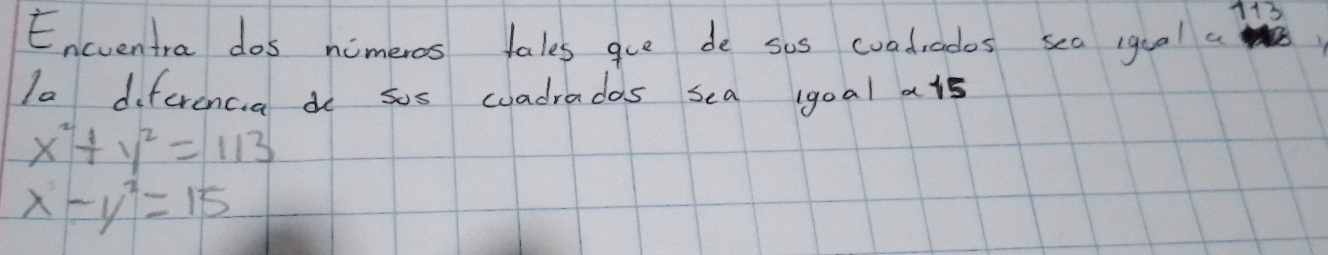 Encuentra dos números tales que de sus cuadrados sea igual a 113 y
la diferencia de sus cuadrados sea igual a 15
x² + y² = 113
x - y² = 15